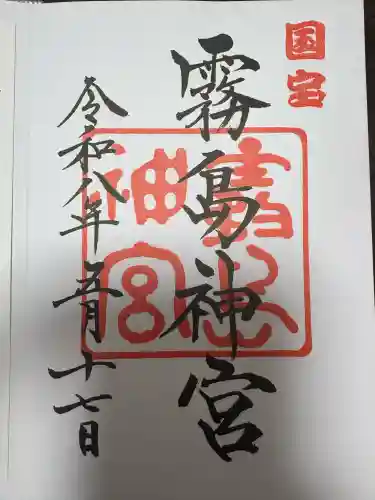 国宝
霧島神宮
令和八年五月十七日
神宮